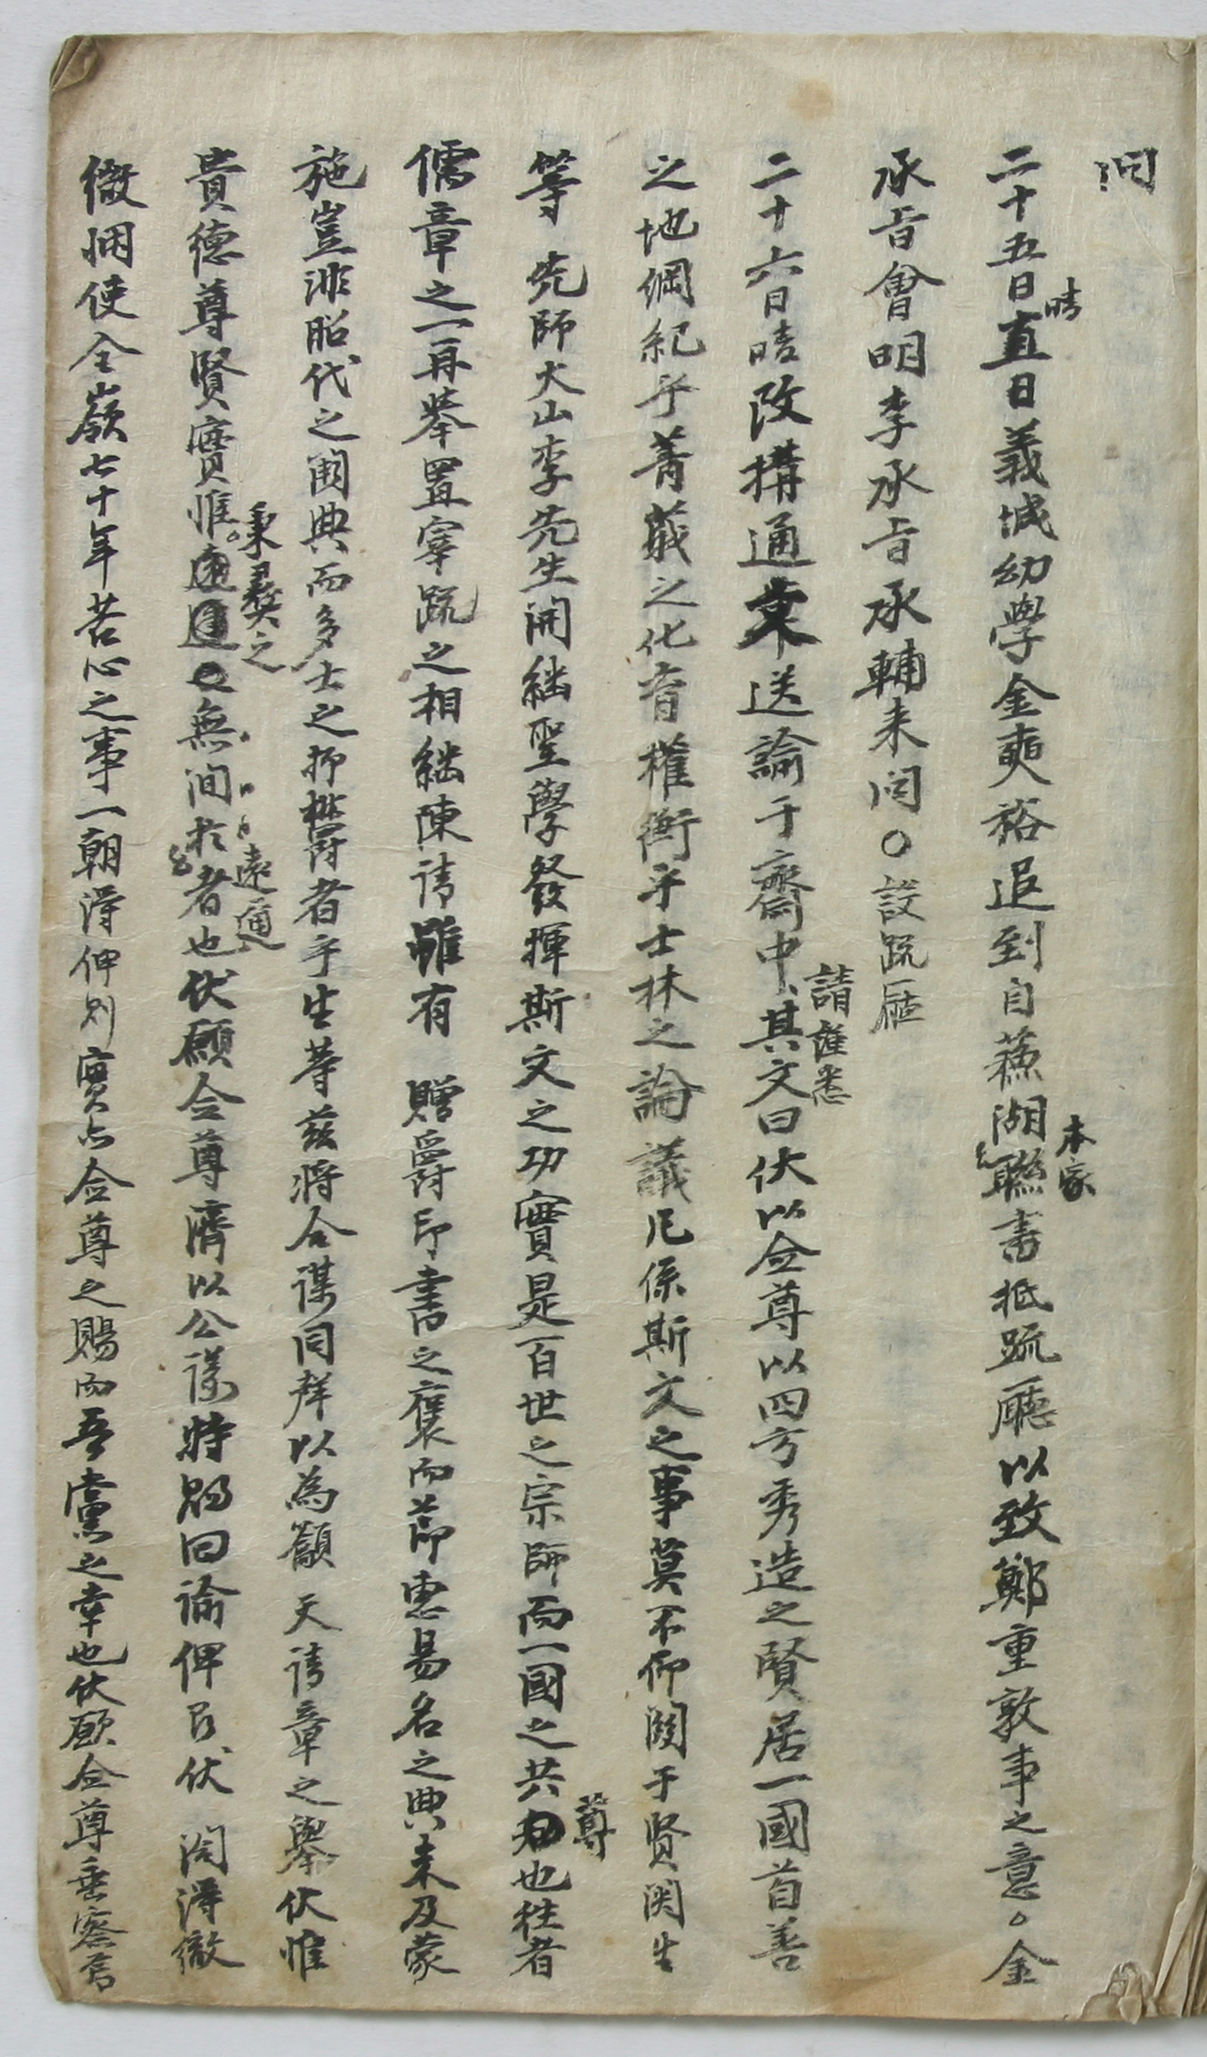 問
二十五日晴直日義城幼學金奭裕退到自蘇湖本家聯書抵疏廳以致鄭重敦事之意○金
承旨會明李承旨承輔来問○設疏廳
二十六日晴改構通草送諭于齋中請謹悉其文曰伏以僉尊以四方秀造之賢居一國首善
之地綱紀乎菁莪之化育權衡乎士林之論議凡係斯文之事莫不仰関于賢関生
等 先師大山李先生開繼聖學發揮斯文之功實是百世之宗師而一國之共尊也往者
儒章之一再擧置宰疏之相繼陳請雖有 贈爵印書之褒而節惠易名之典未及蒙
施豈非昭代之闕典而多士之抑欝者乎生等玆將合謀同辞以為籲 天請章之擧伏惟
貴德尊賢實惟秉彛之無間於遠通者也伏願僉尊濟以公議特賜回諭俾即伏 閤得徹
微悃使全嶺七十年苦心之事一朝得伸則實亦僉尊之賜而吾黨之幸也伏願僉尊垂察焉